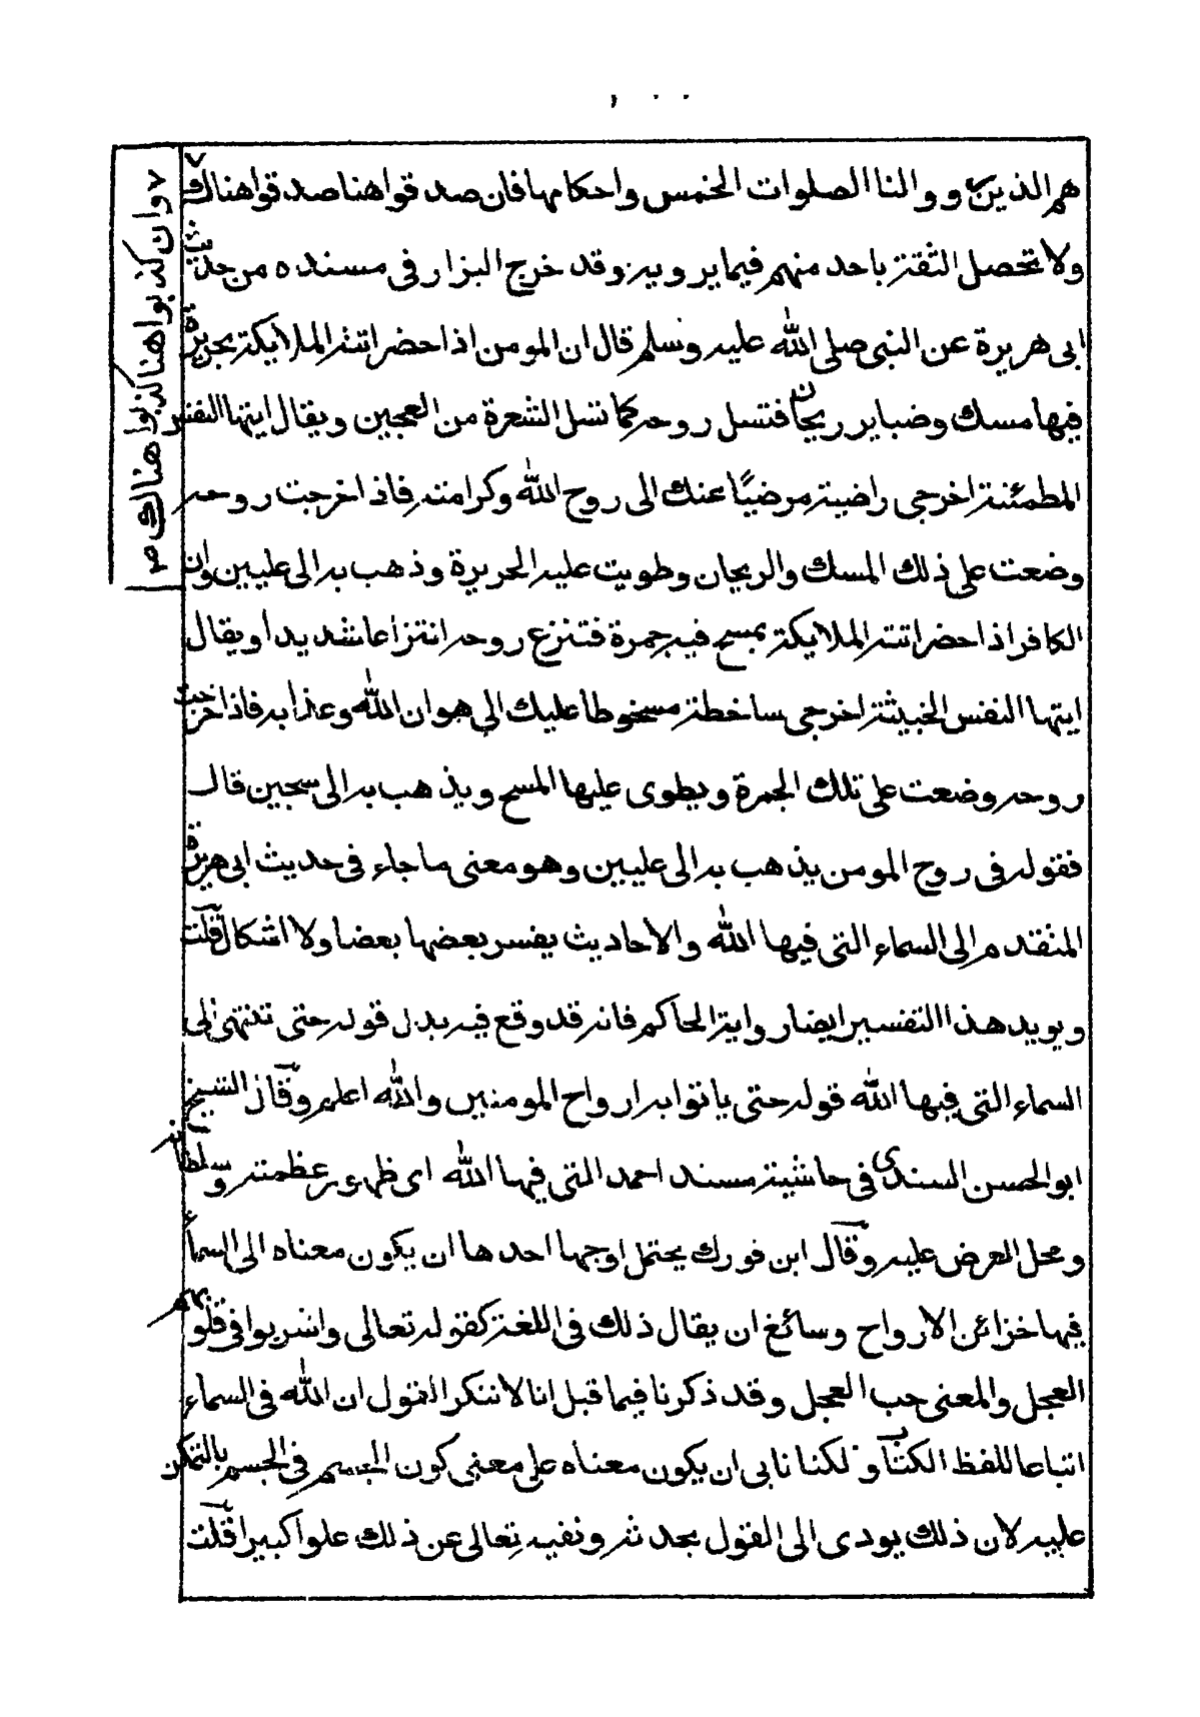 ١٠٠
هم الذين رووا لنا الصلوات الخمس واحكامها فان صدقوا هنا صدقوا هناك
ولا تحصل الثقة باحد منهم فيما يرويه وقد خرج البزار فى مسنده من حديث
ابى هريرة عن النبى صلى الله عليه وسلم قال ان المومن اذا احضر اتته الملايكة بحريرة
فيها مسك وضباير ريحان فتسل روحه كما تسل الشعرة من العجين ويقال ايتها النفس
المطمئنة اخرجى راضية مرضيًا عنك الى روح الله وكرامته فاذا خرجت روحه
وضعت على ذلك المسك والريحان وطويت عليه الحريرة وذهب به الى عليين وان
الكافر اذا احضر اتته الملايكة بمسح فيه جمرة فتنزع روحه انتزاعا شديدا ويقال
ايتها النفس الخبيثة اخرجى ساخطة مسخوطا عليك الى هوان الله وعذابه فاذا خرجت
روحه وضعت على تلك الجمرة ويطوى عليها المسح ويذهب به الى سجين قال
فقوله فى روح المومن يذهب به الى عليين وهو معنى ما جاء فى حديث ابى هريرة
المتقدم الى السماء التى فيها الله والاحاديث يفسر بعضها بعضا ولا اشكال قلت
ويويد هذا التفسير ايضا رواية الحاكم فانه قد وقع فيه بدل قوله حتى تنتهى الى
السماء التى فيها الله قوله حتى ياتوا به ارواح المومنين والله اعلم وقال الشيخ
ابو الحسن السندى فى حاشية مسند احمد التى فيها الله اى ظهور عظمته وسلطانه
ومحل العرض عليه وقال ابن فورك يحتمل اوجها احدها ان يكون معناه الى السماء
فيها خزائن الارواح وسائغ ان يقال ذلك فى اللغة كقوله تعالى واشربوا فى قلوبهم
العجل والمعنى حب العجل وقد ذكرنا فيما قبل انا لا ننكر القول ان الله فى السماء
اتباعا للفظ الكتاب ولكنا نابى ان يكون معناه على معنى كون الجسم فى الجسم بالتمكن
عليه لان ذلك يودى الى القول بحدثه ونفيه تعالى عن ذلك علوا كبيرا قلت
وان كذبوا هنا كذبوا هناك صح